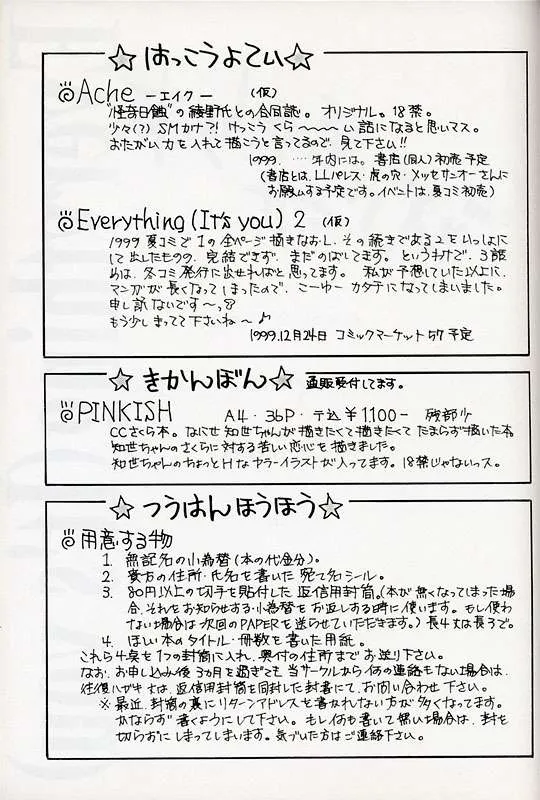 ☆はっこうよてい☆
Ache －エイク－ （仮）
"怪奇日蝕"の綾野氏との合同誌。オリジナル。18禁。
少々(?)SMカナ?!けっこうくら〜〜〜い話になると思いマス。
おたがい力を入れて描こうと言ってるので、見て下さい!!
1999.……年内には。書店(個人)初売予定
(書店とは、LLパレス・虎の穴・メッセサンオーさんに
お願いする予定です。イベントは、夏コミ初売)
Everything (It's you) 2 （仮）
1999夏コミで1の全ページ描きなおし、その続きである2をいっしょに
して出したものの、完結できず、まだのばしてます。というわけで、3話
めは、冬コミ発行に出せればと思ってます。私が予想していた以上に、
マンガが長くなってしまったので、こーゆーカタチになってしまいました。
申し訳ないです〜っ
もう少しまってて下さいね〜♪
1999.12月24日 コミックマーケット57予定
☆きかんぼん☆ 通販受付してます。
PINKISH A4・36P・〒込￥1100－ 残部少
CCさくら本。なにせ知世ちゃんが描きたくて描きたくてたまらず描いた本。
知世ちゃんのさくらに対する苦しい恋心を描きました。
知世ちゃんのちょっとHなカラーイラストが入ってます。18禁じゃないっス。
☆つうはんほうほう☆
用意する物
1. 無記名の小為替(本の代金分)。
2. 貴方の住所・氏名を書いた宛て名シール。
3. 80円以上の切手を貼付した返信用封筒。(本が無くなってしまった場
合、それをお知らせする・小為替をお返しする時に使います。もし使わ
ない場合は次回のPAPERを送らせていただきます。)長4又は長3で。
4. ほしい本のタイトル・冊数を書いた用紙。
これら4点を1つの封筒に入れ、奥付の住所までお送り下さい。
なお、お申し込み後3カ月を過ぎても当サークルから何の連絡もない場合は、
往復ハガキ又は、返信用封筒を同封した封書にて、お問い合わせ下さい。
※最近、封筒の裏にリターンアドレスを書かれない方が多くなってます。
かならず書くようにして下さい。もし何も書いて無い場合は、封を
切らずにしまってしまいます。気づいた方はご連絡下さい。